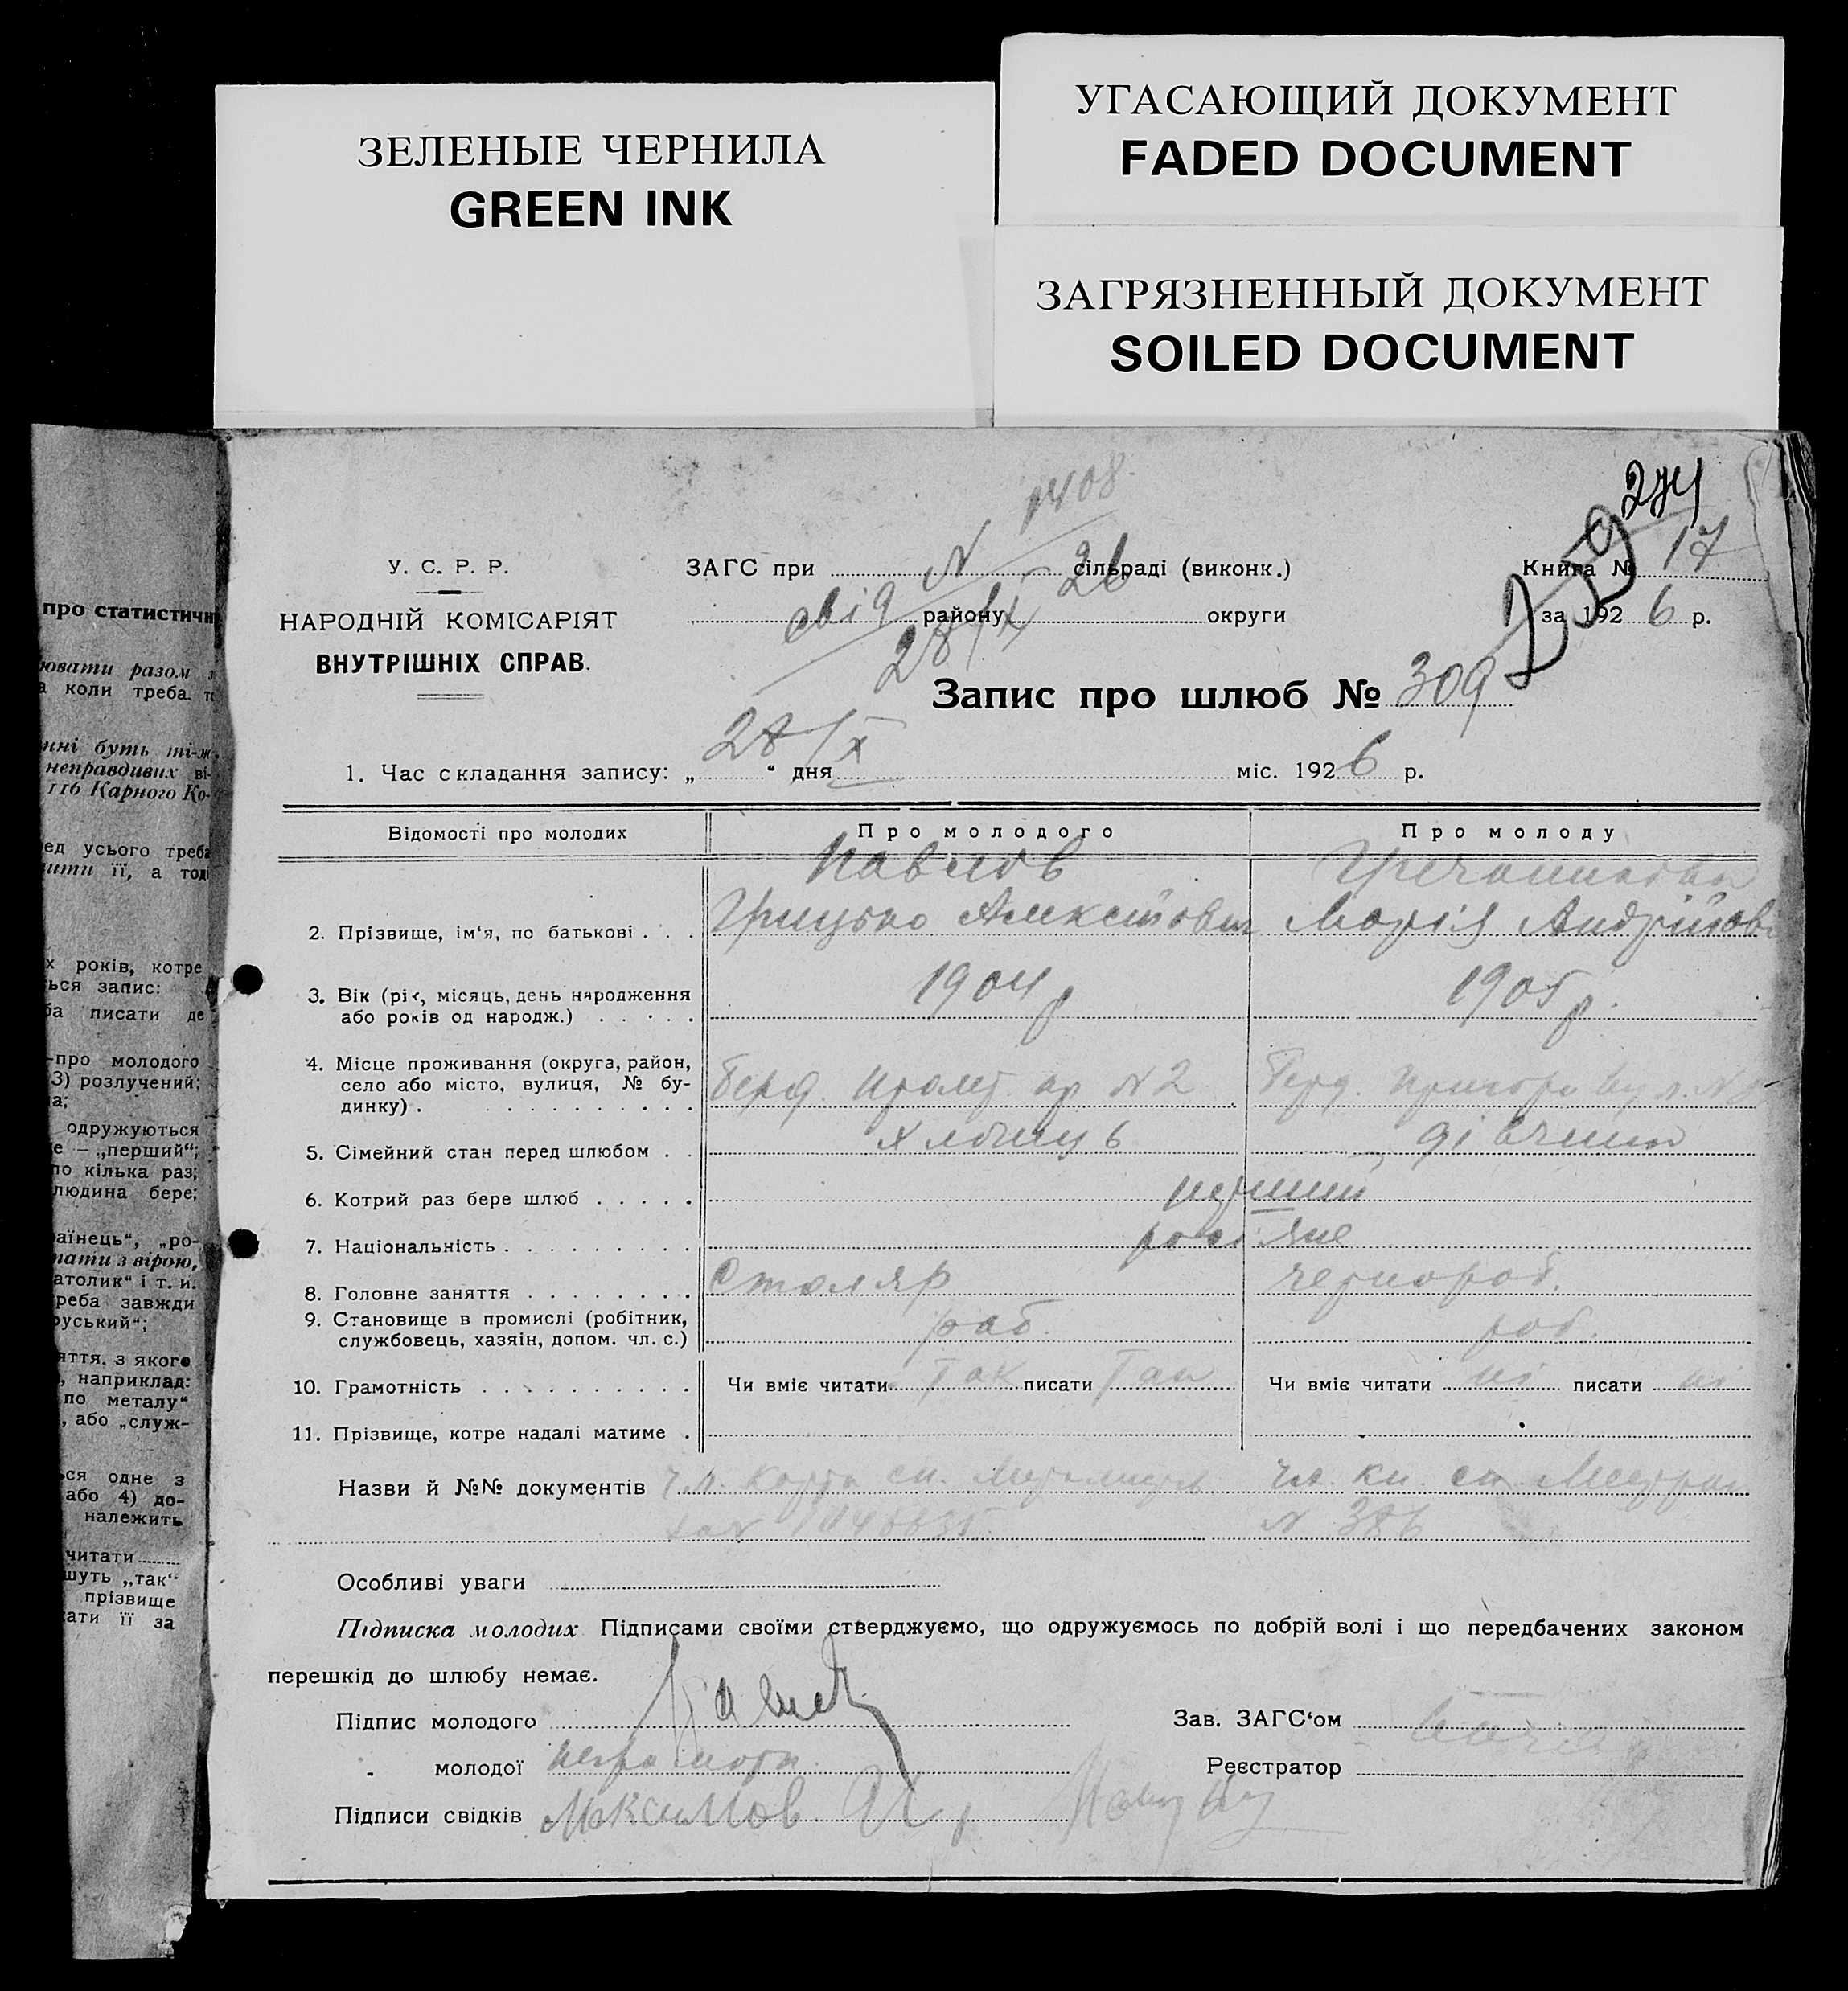 УГАСАЮЩИЙ ДОКУМЕНТ
FADED DOCUMENT
ЗЕЛЕНЫЕ ЧЕРНИЛА
GREEN INK
ЗАГРЯЗНЕННЫЙ ДОКУМЕНТ
SOILED DOCUMENT
про статистичн
ювати разом
коли треба.
нні буть
неправдивих ві-
116 Карного Ко-
ед усього треба
її, а тоді
х років, котре
ться запис:
ба писати де
-про молодого
3) розлучений;
одружуються
„перший“;
по кілька раз;
людина бере;
аїнець“, „ро-
з вірою,
атолик“ і т. и.
реба завжди
руський“;
яття, з якого
, наприклад:
по металу“
, або „служ-
ся одне з
або 4) до-
належить
читати
шуть „так“
прізвище
ати її за
274
259
1408
У. С. Р. Р.
НАРОДНІЙ КОМІСАРІЯТ
ВНУТРІШНІХ СПРАВ.
ЗАГС при N сільраді (виконк.)
свід району округи
28/X 26
Книга № 17
за 1926 р.
Запис про шлюб № 309
1. Час складання запису: „28/X“ дня міс. 1926 р.
Відомості про молодих Про молодого Про молоду
Павлов
2. Прізвище, ім‘я, по батькові Грицько Марія
3. Вік (рік, місяць, день народження 1904 р 1905 р.
або років од народж.)
4. Місце проживання (округа, район,
село або місто, вулиця, № бу-
динку) Берд. Пролет. № 2 Берд.
5. Сімейний стан перед шлюбом хлопець дівчина
6. Котрий раз бере шлюб перший
7. Національність росіяне
8. Головне заняття Столяр чернороб.
9. Становище в промислі (робітник,
службовець, хазяїн, допом. чл. с.) роб. роб.
10. Грамотність Чи вміє читати Так писати Так Чи вміє читати ні писати ні
11. Прізвище, котре надалі матиме
Назви й №№ документів чл. сп. чл. кн. сп.
N 386
Особливі уваги
Підписка молодих Підписами своїми стверджуємо, що одружуємось по добрій волі і що передбачених законом
перешкід до шлюбу немає.
Підпис молодого Зав. ЗАГС‘ом
молодої неграмотн. Реєстратор
Підписи свідків Максимов